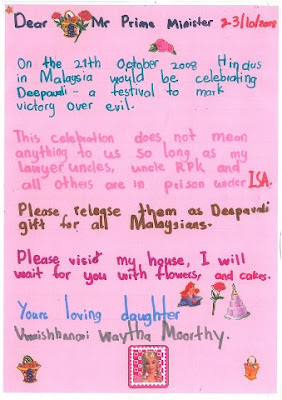 Dear Mr Prime Minister 23/10/2008
On the 27th October 2008, Hindus
in Malaysia would be celebrating
Deepavali - a festival to mark
victory over evil.
This celebration does not mean
anything to us so long as my
lawyer uncles, uncle RPK and
all others are in prison under ISA.
Please release them as Deepavali
gift for all Malaysians.
Please visit my house, I will
wait for you with flowers, and cakes.
Yours loving daughter
Waytha Moorthy.